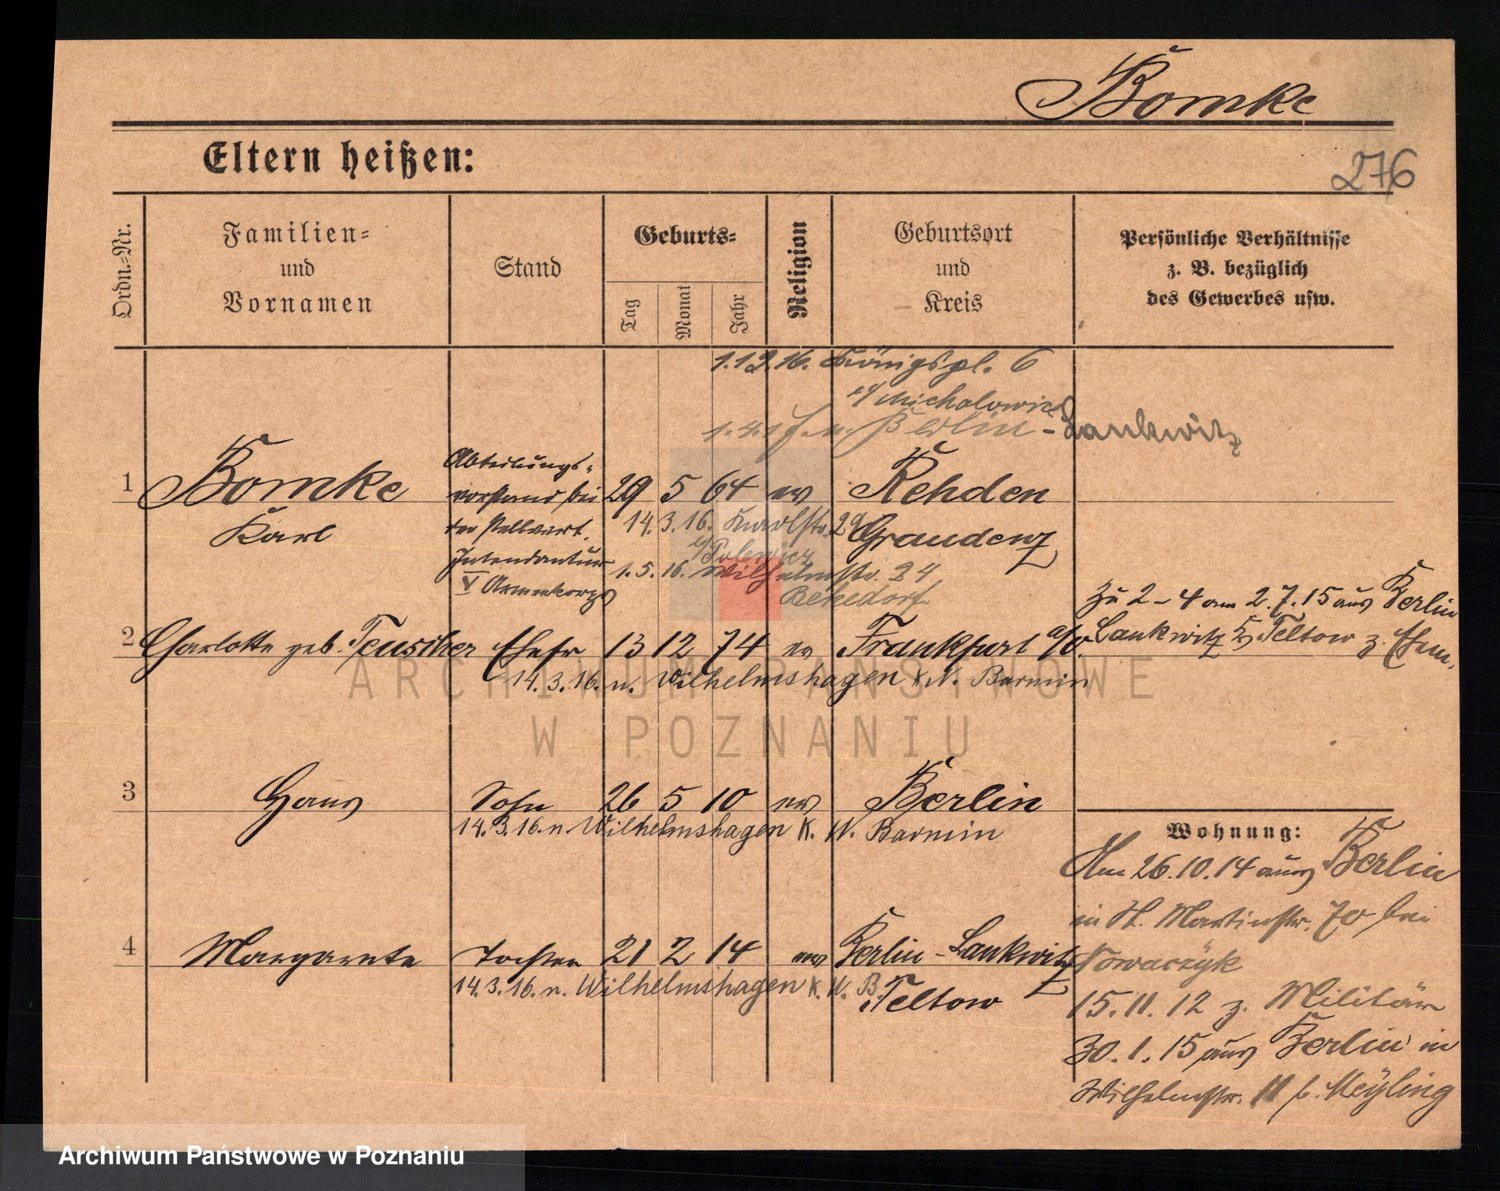 Bomke
Eltern heißen:
276
Ordn.-Nr.
Familien-
und
Vornamen
Stand
Geburts-
Tag
Monat
Jahr
Religion
Geburtsort
und
Kreis
Persönliche Verhältnisse
z. B. bezüglich
des Gewerbes usw.
1.12.16. Königspl. 6
b/ Michalowicz
Berlin-Lankwitz
1 Bomke Abteilungs- 29 5 64 ev Rehden
Karl vorstand bei Graudenz
der stellvert.
Intendantur
V Armeekorps
14.3.16. Karlstr. 29
1.5.16. Wilhelmstr. 24
2 Charlotte geb. Teuscher Ehefr 13 12 74 ev Frankfurt a/O.
zu 2-4 am 2.7.15 aus Berlin
Lankwitz Teltow z. Ehem.
14.3.16. n. Wilhelmshagen K. N. Barnim
3 Hans Sohn 26 5 10 ev Berlin
14.3.16. n. Wilhelmshagen K. N. Barnim
4 Margarete Tochter 21 2 14 ev Berlin-Lankwitz
Teltow
14.3.16. n. Wilhelmshagen K. N. B.
Wohnung:
Am 26.10.14 aus Berlin
in St. Martinstr. 70 bei
Nowaczyk
15.11.12 z. Militär
30.1.15 aus Berlin in
Wilhelmstr. 11 b. Meyling
ARCHIWUM PAŃSTWOWE
W POZNANIU
Archiwum Państwowe w Poznaniu